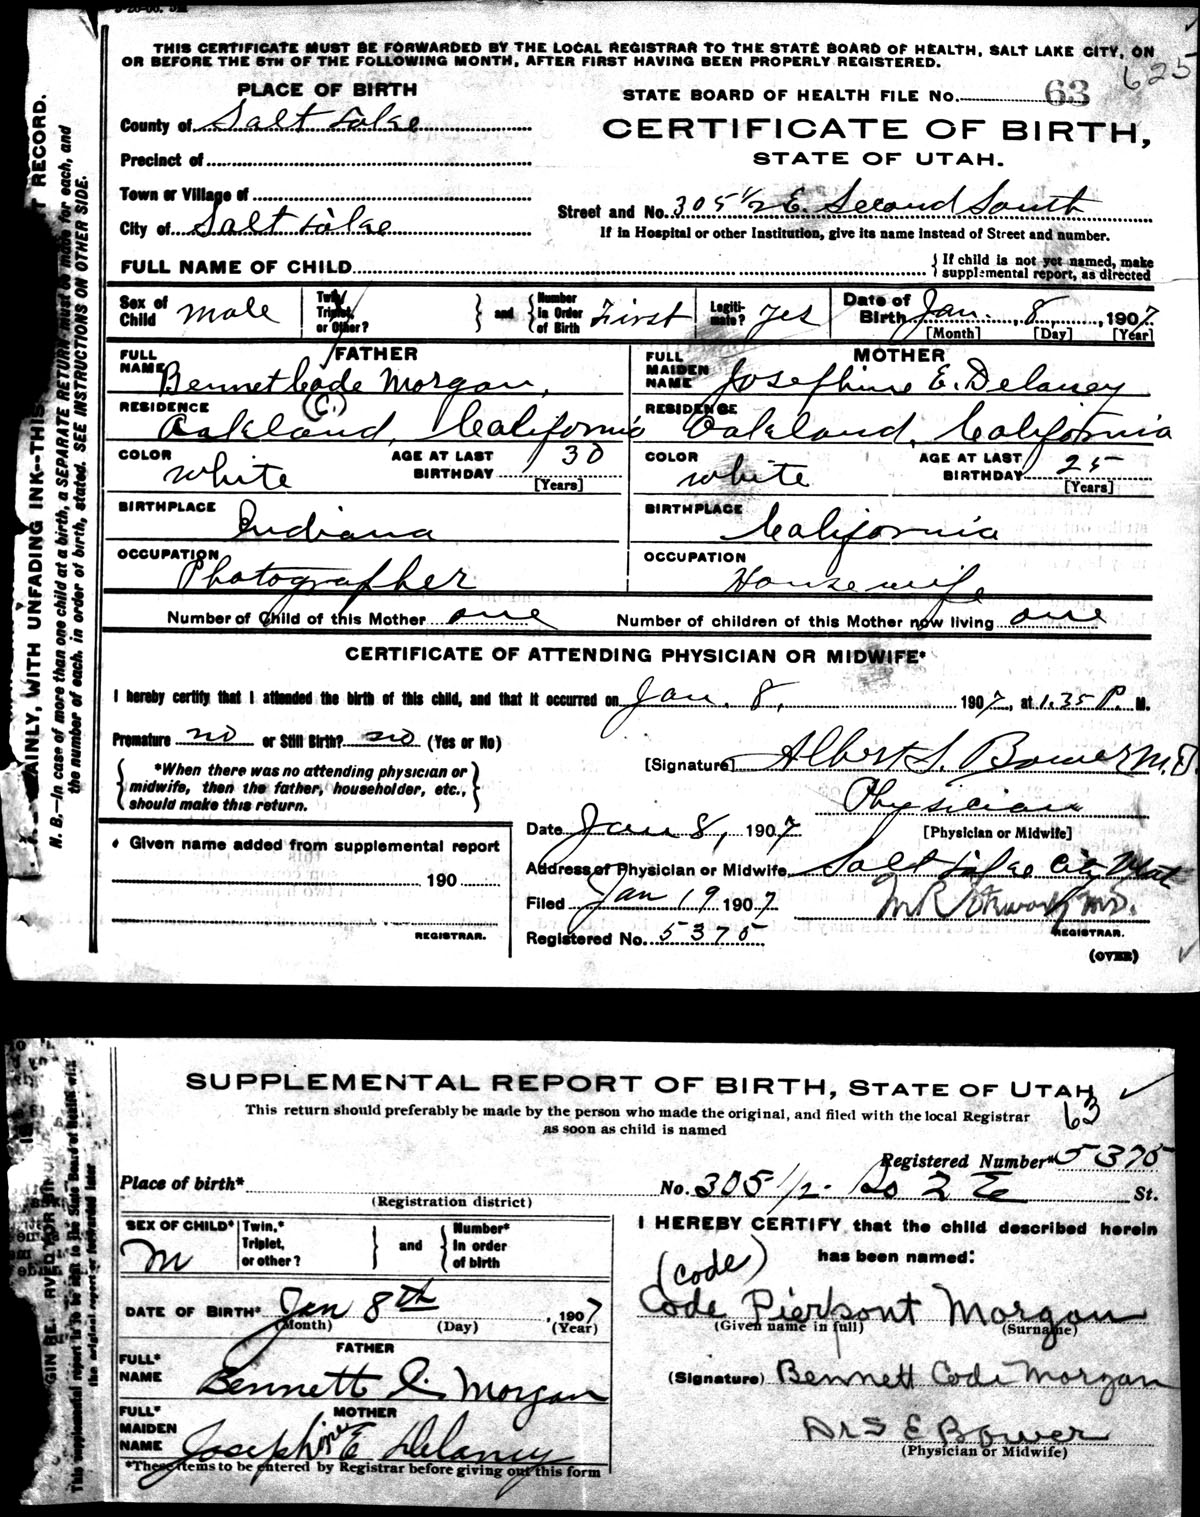 THIS CERTIFICATE MUST BE FORWARDED BY THE LOCAL REGISTRAR TO THE STATE BOARD OF HEALTH, SALT LAKE CITY, ON
OR BEFORE THE 5TH OF THE FOLLOWING MONTH, AFTER FIRST HAVING BEEN PROPERLY REGISTERED.
625
PLACE OF BIRTH
STATE BOARD OF HEALTH FILE No. 63
County of Salt Lake
CERTIFICATE OF BIRTH,
STATE OF UTAH.
Precinct of
Town or Village of
Street and No. 305 1/2 E. Second South
City of Salt Lake
If in Hospital or other Institution, give its name instead of Street and number.
FULL NAME OF CHILD
If child is not yet named, make
supplemental report, as directed
Sex of Child male
Twin, Triplet, or Other?
and
Number in Order of Birth First
Legiti-mate? yes
Date of Birth Jan. 8, 1907
[Month] [Day] [Year]
FATHER
FULL NAME Bennet Code Morgan,
(C.)
MOTHER
FULL MAIDEN NAME Josephine E. Delaney
RESIDENCE Oakland, California
RESIDENCE Oakland, California
COLOR white AGE AT LAST BIRTHDAY 30 [Years]
COLOR white AGE AT LAST BIRTHDAY 25 [Years]
BIRTHPLACE Indiana
BIRTHPLACE California
OCCUPATION Photographer
OCCUPATION Housewife
Number of Child of this Mother one Number of children of this Mother now living one
CERTIFICATE OF ATTENDING PHYSICIAN OR MIDWIFE*
I hereby certify that I attended the birth of this child, and that it occurred on Jan. 8, 1907, at 1.35 P. M.
Premature no or Still Birth? no (Yes or No)
*When there was no attending physician or
midwife, then the father, householder, etc.,
should make this return.
[Signature] Albert S. Bower M.D
Physician
[Physician or Midwife]
Date Jan 8, 1907
Given name added from supplemental report
190
REGISTRAR.
Address of Physician or Midwife Salt Lake City Utah
Filed Jan 19 1907
REGISTRAR.
Registered No. 5375
(OVER)
AINLY, WITH UNFADING INK--THIS
T RECORD.
N. B.—In case of more than one child at a birth, a SEPARATE RETURN must be made for each, and
the number of each, in order of birth, stated. SEE INSTRUCTIONS ON OTHER SIDE.
SUPPLEMENTAL REPORT OF BIRTH, STATE OF UTAH
63
This return should preferably be made by the person who made the original, and filed with the local Registrar
as soon as child is named
Registered Number* 5375
Place of birth*
(Registration district)
No. 305 1/2 - So 2 E St.
SEX OF CHILD* M
Twin,* Triplet, or other?
and
Number* in order of birth
I HEREBY CERTIFY that the child described herein
has been named:
(Code)
Code Pierpont Morgan
(Given name in full) (Surname)
DATE OF BIRTH* Jan 8th, 1907
(Month) (Day) (Year)
FATHER
FULL* NAME Bennett C. Morgan
(Signature) Bennett Code Morgan
MOTHER
FULL* MAIDEN NAME Josephine E Delaney
Dr S E Bower
(Physician or Midwife)
*These items to be entered by Registrar before giving out this form